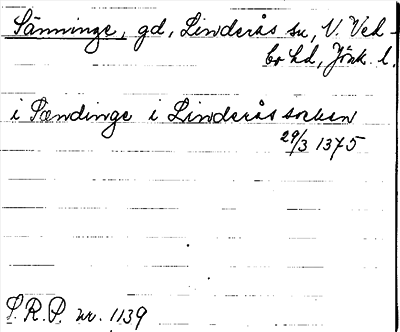 Sänninge, gd, Linderås sn, N. Ved-
bo hd, Jönk. l.
i Sændinge i Linderås socken
29/3 1375
S.R.P. nr. 1139